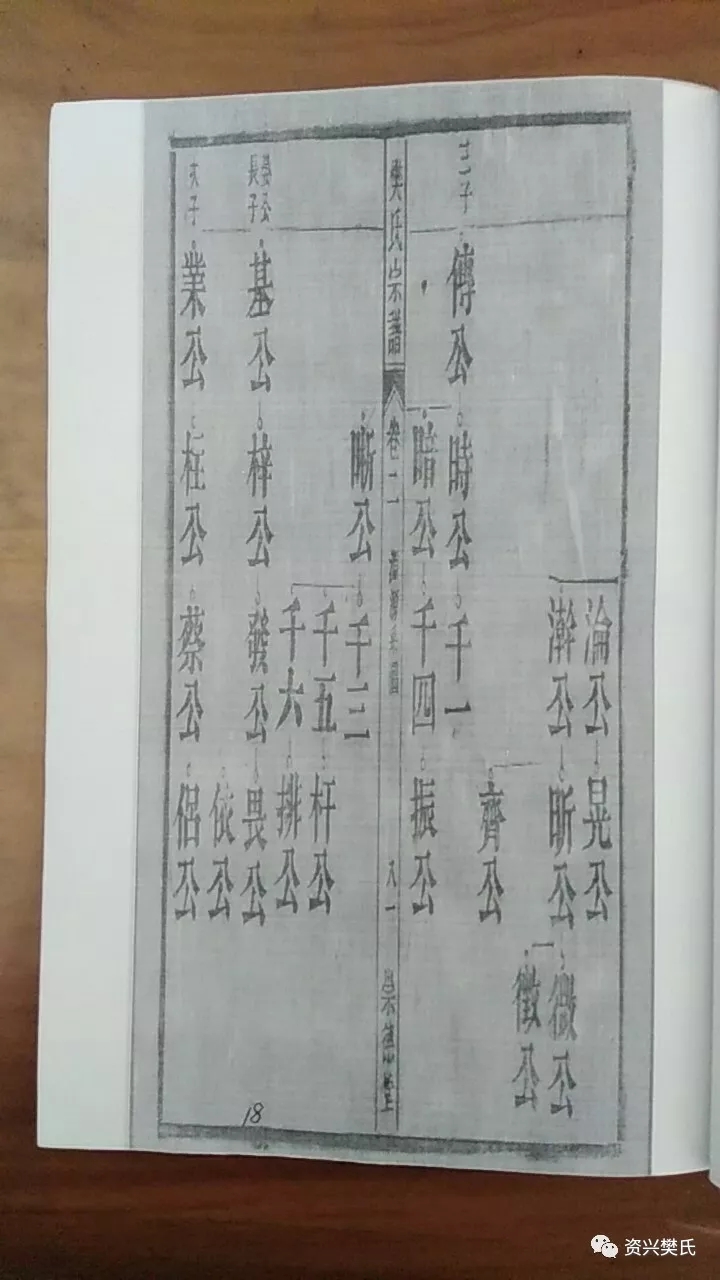 淪公
晃公
瀚公
昕公
微公
徵公
齊公
三子
傳公
時公
千一
暗公
千四
振公
樊氏宗譜
卷二
八一
崇德堂
晰公
千三
千五
杆公
千六
排公
晏公
長子
基公
梓公
發公
畏公
依公
次子
業公
柱公
蔡公
侶公
18
资兴樊氏